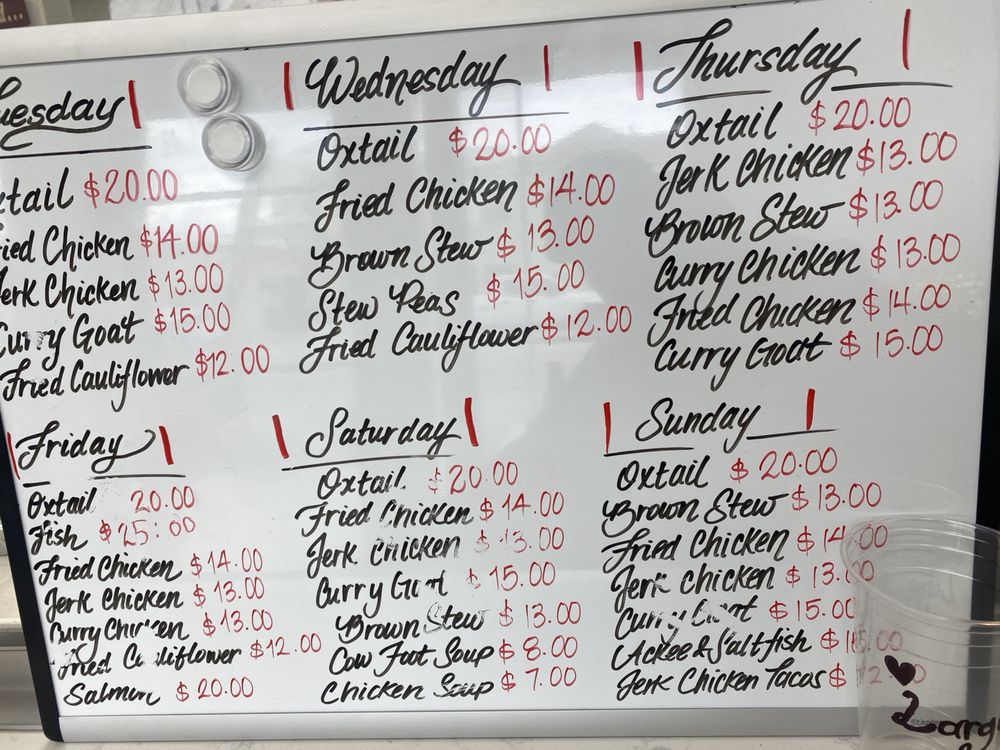 uesday
tail $20.00
ied Chicken $14.00
erk Chicken $13.00
Curry Goat $15.00
Fried Cauliflower $12.00
Wednesday
Oxtail $20.00
Fried Chicken $14.00
Brown Stew $13.00
Stew Peas $15.00
Fried Cauliflower $12.00
Thursday
Oxtail $20.00
Jerk Chicken $13.00
Brown Stew $13.00
Curry Chicken $13.00
Fried Chicken $14.00
Curry Goat $15.00
Friday
Oxtail 20.00
Fish $25:00
Fried Chicken $14.00
Jerk Chicken $13.00
Curry Chicken $13.00
Fried Cauliflower $12.00
Salmon $20.00
Saturday
Oxtail $20.00
Fried Chicken $14.00
Jerk Chicken $13.00
Curry Goat $15.00
Brown Stew $13.00
Cow Foot Soup $8.00
Chicken Soup $7.00
Sunday
Oxtail $20.00
Brown Stew $13.00
Fried Chicken $14.00
Jerk Chicken $13.00
Curry Goat $15.00
Ackee & Saltfish
Jerk Chicken Tacos $
Larg